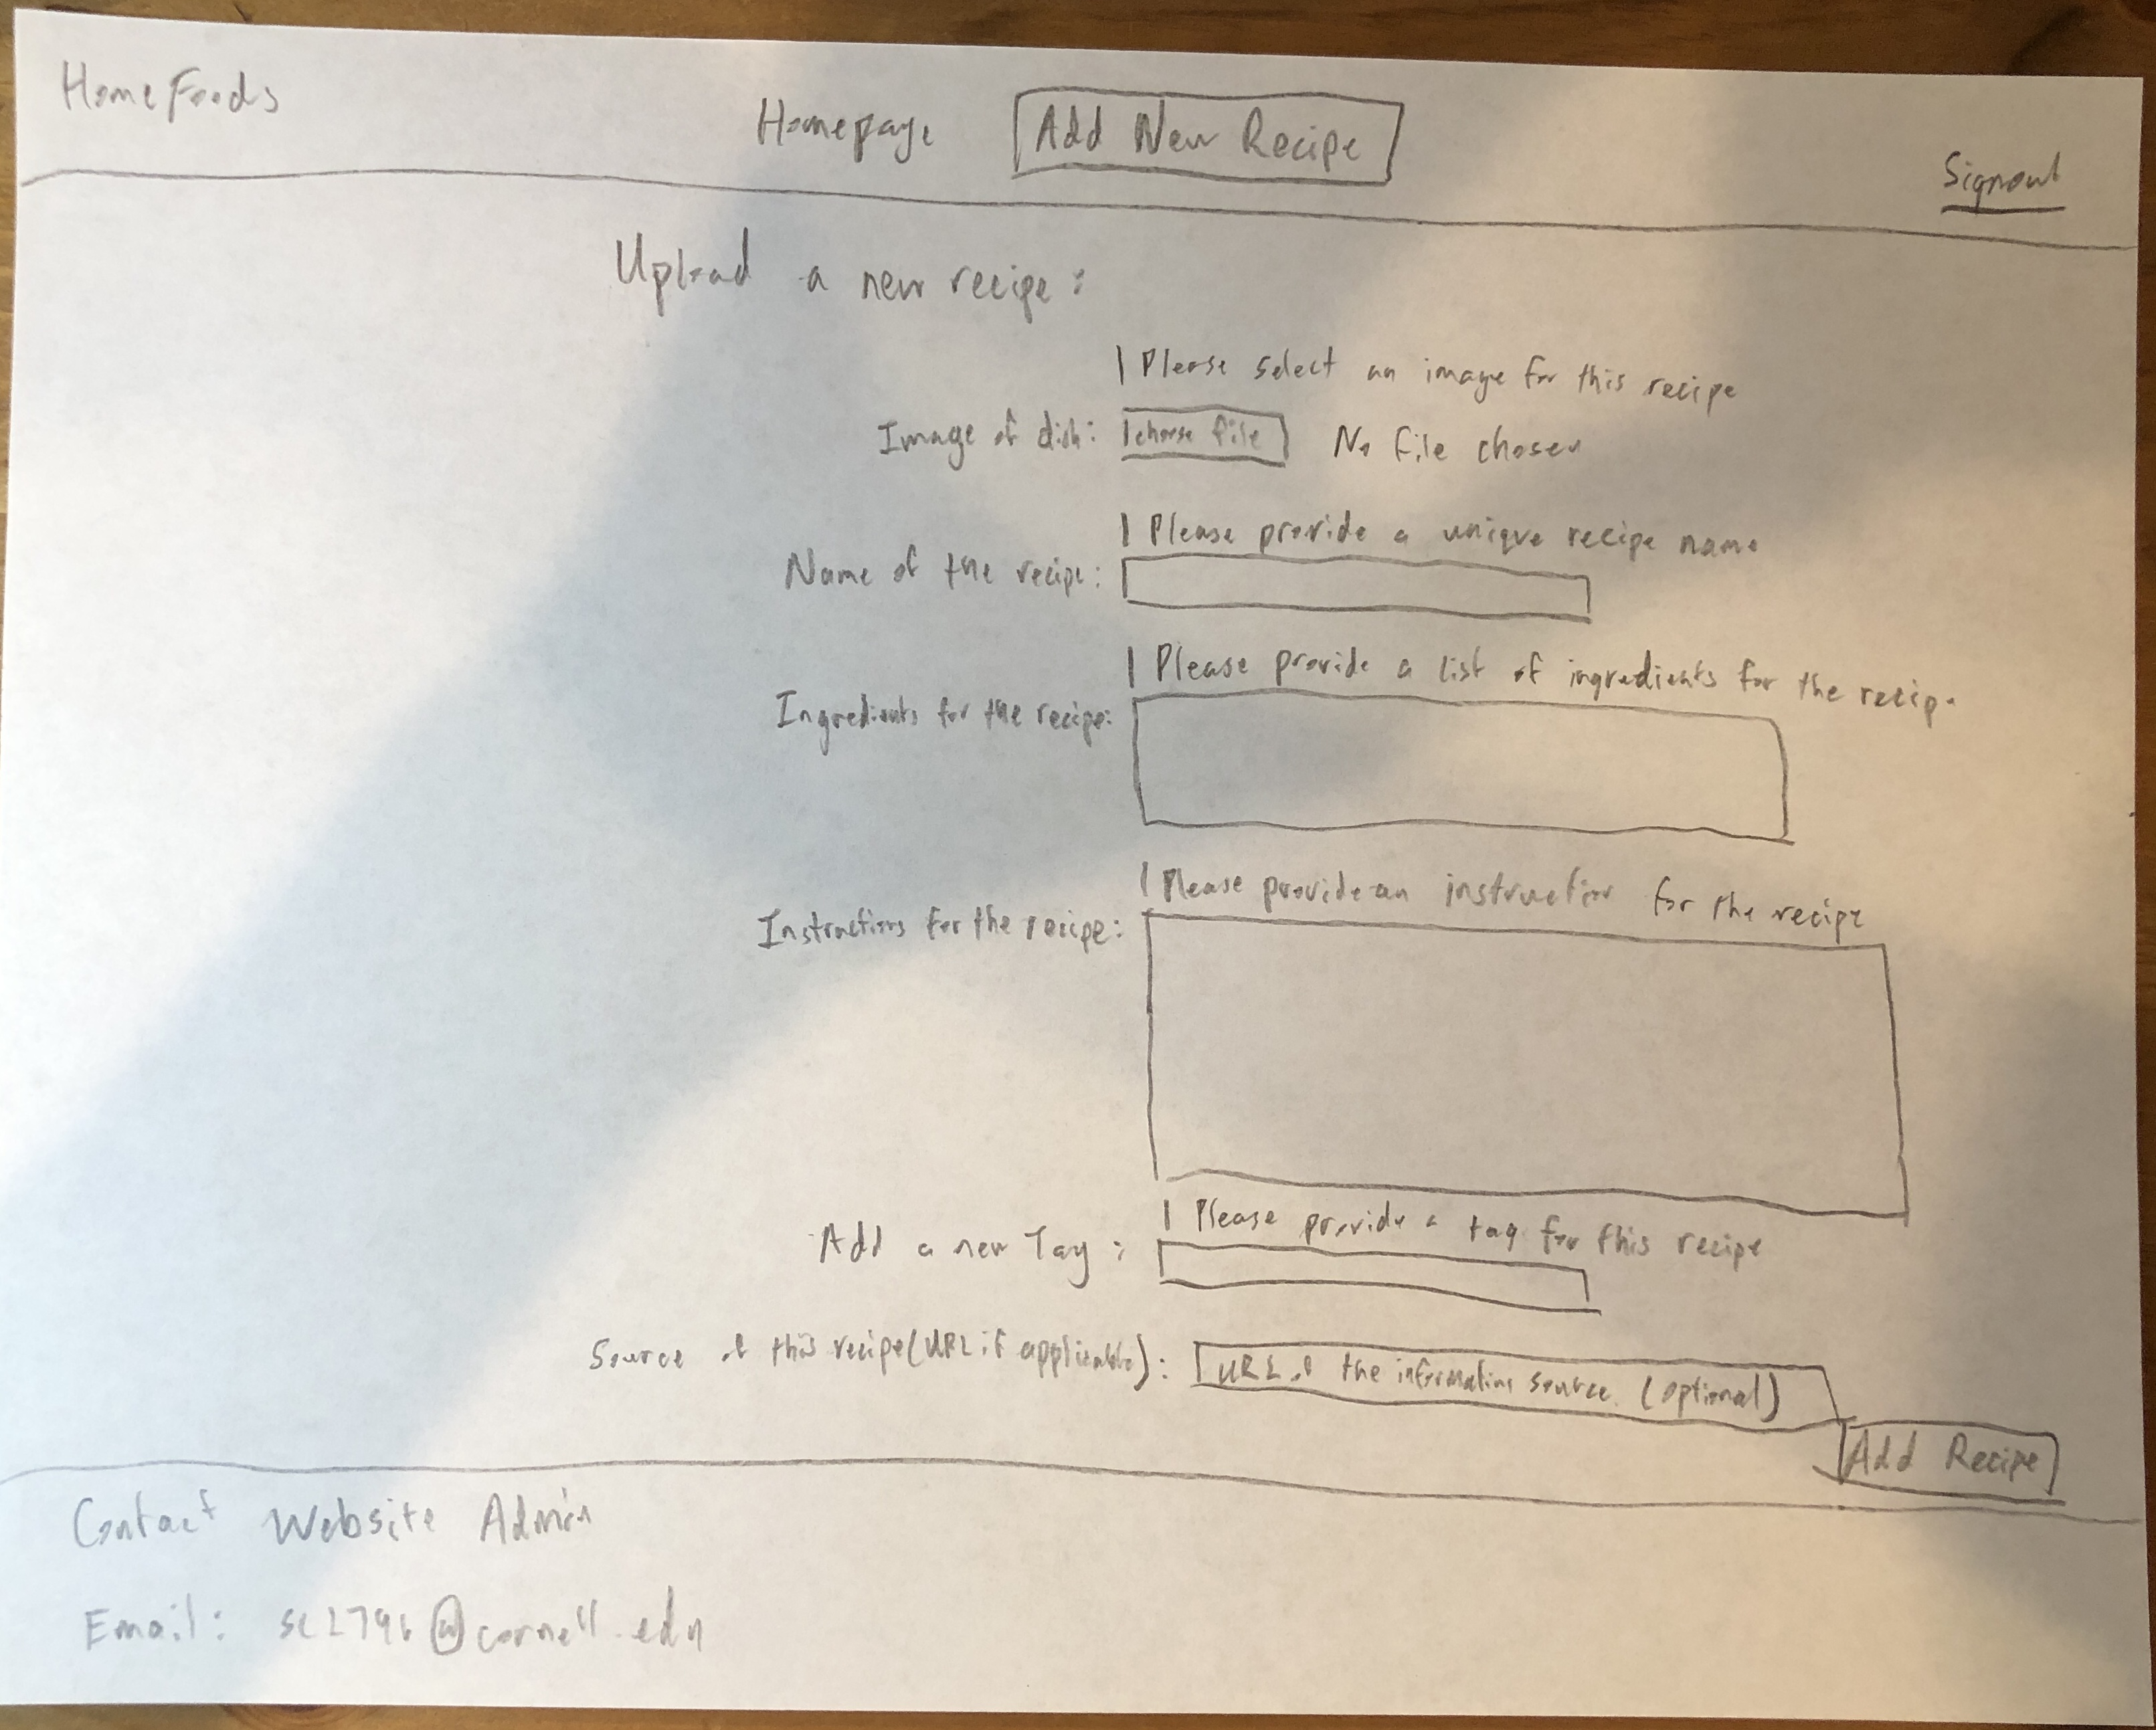 Home Foods
Homepage Add New Recipe
Signout
Upload a new recipe:
| Please select an image for this recipe
Image of dish: choose file No file chosen
| Please provide a unique recipe name
Name of the recipe:
| Please provide a list of ingredients for the recipe
Ingredients for the recipe:
| Please provide an instruction for the recipe
Instructions for the recipe:
| Please provide a tag for this recipe
Add a new Tag:
Source of this recipe (URL if applicable): URL of the information source. (optional)
Add Recipe
Contact Website Admin
Email: sc2796@cornell.edu